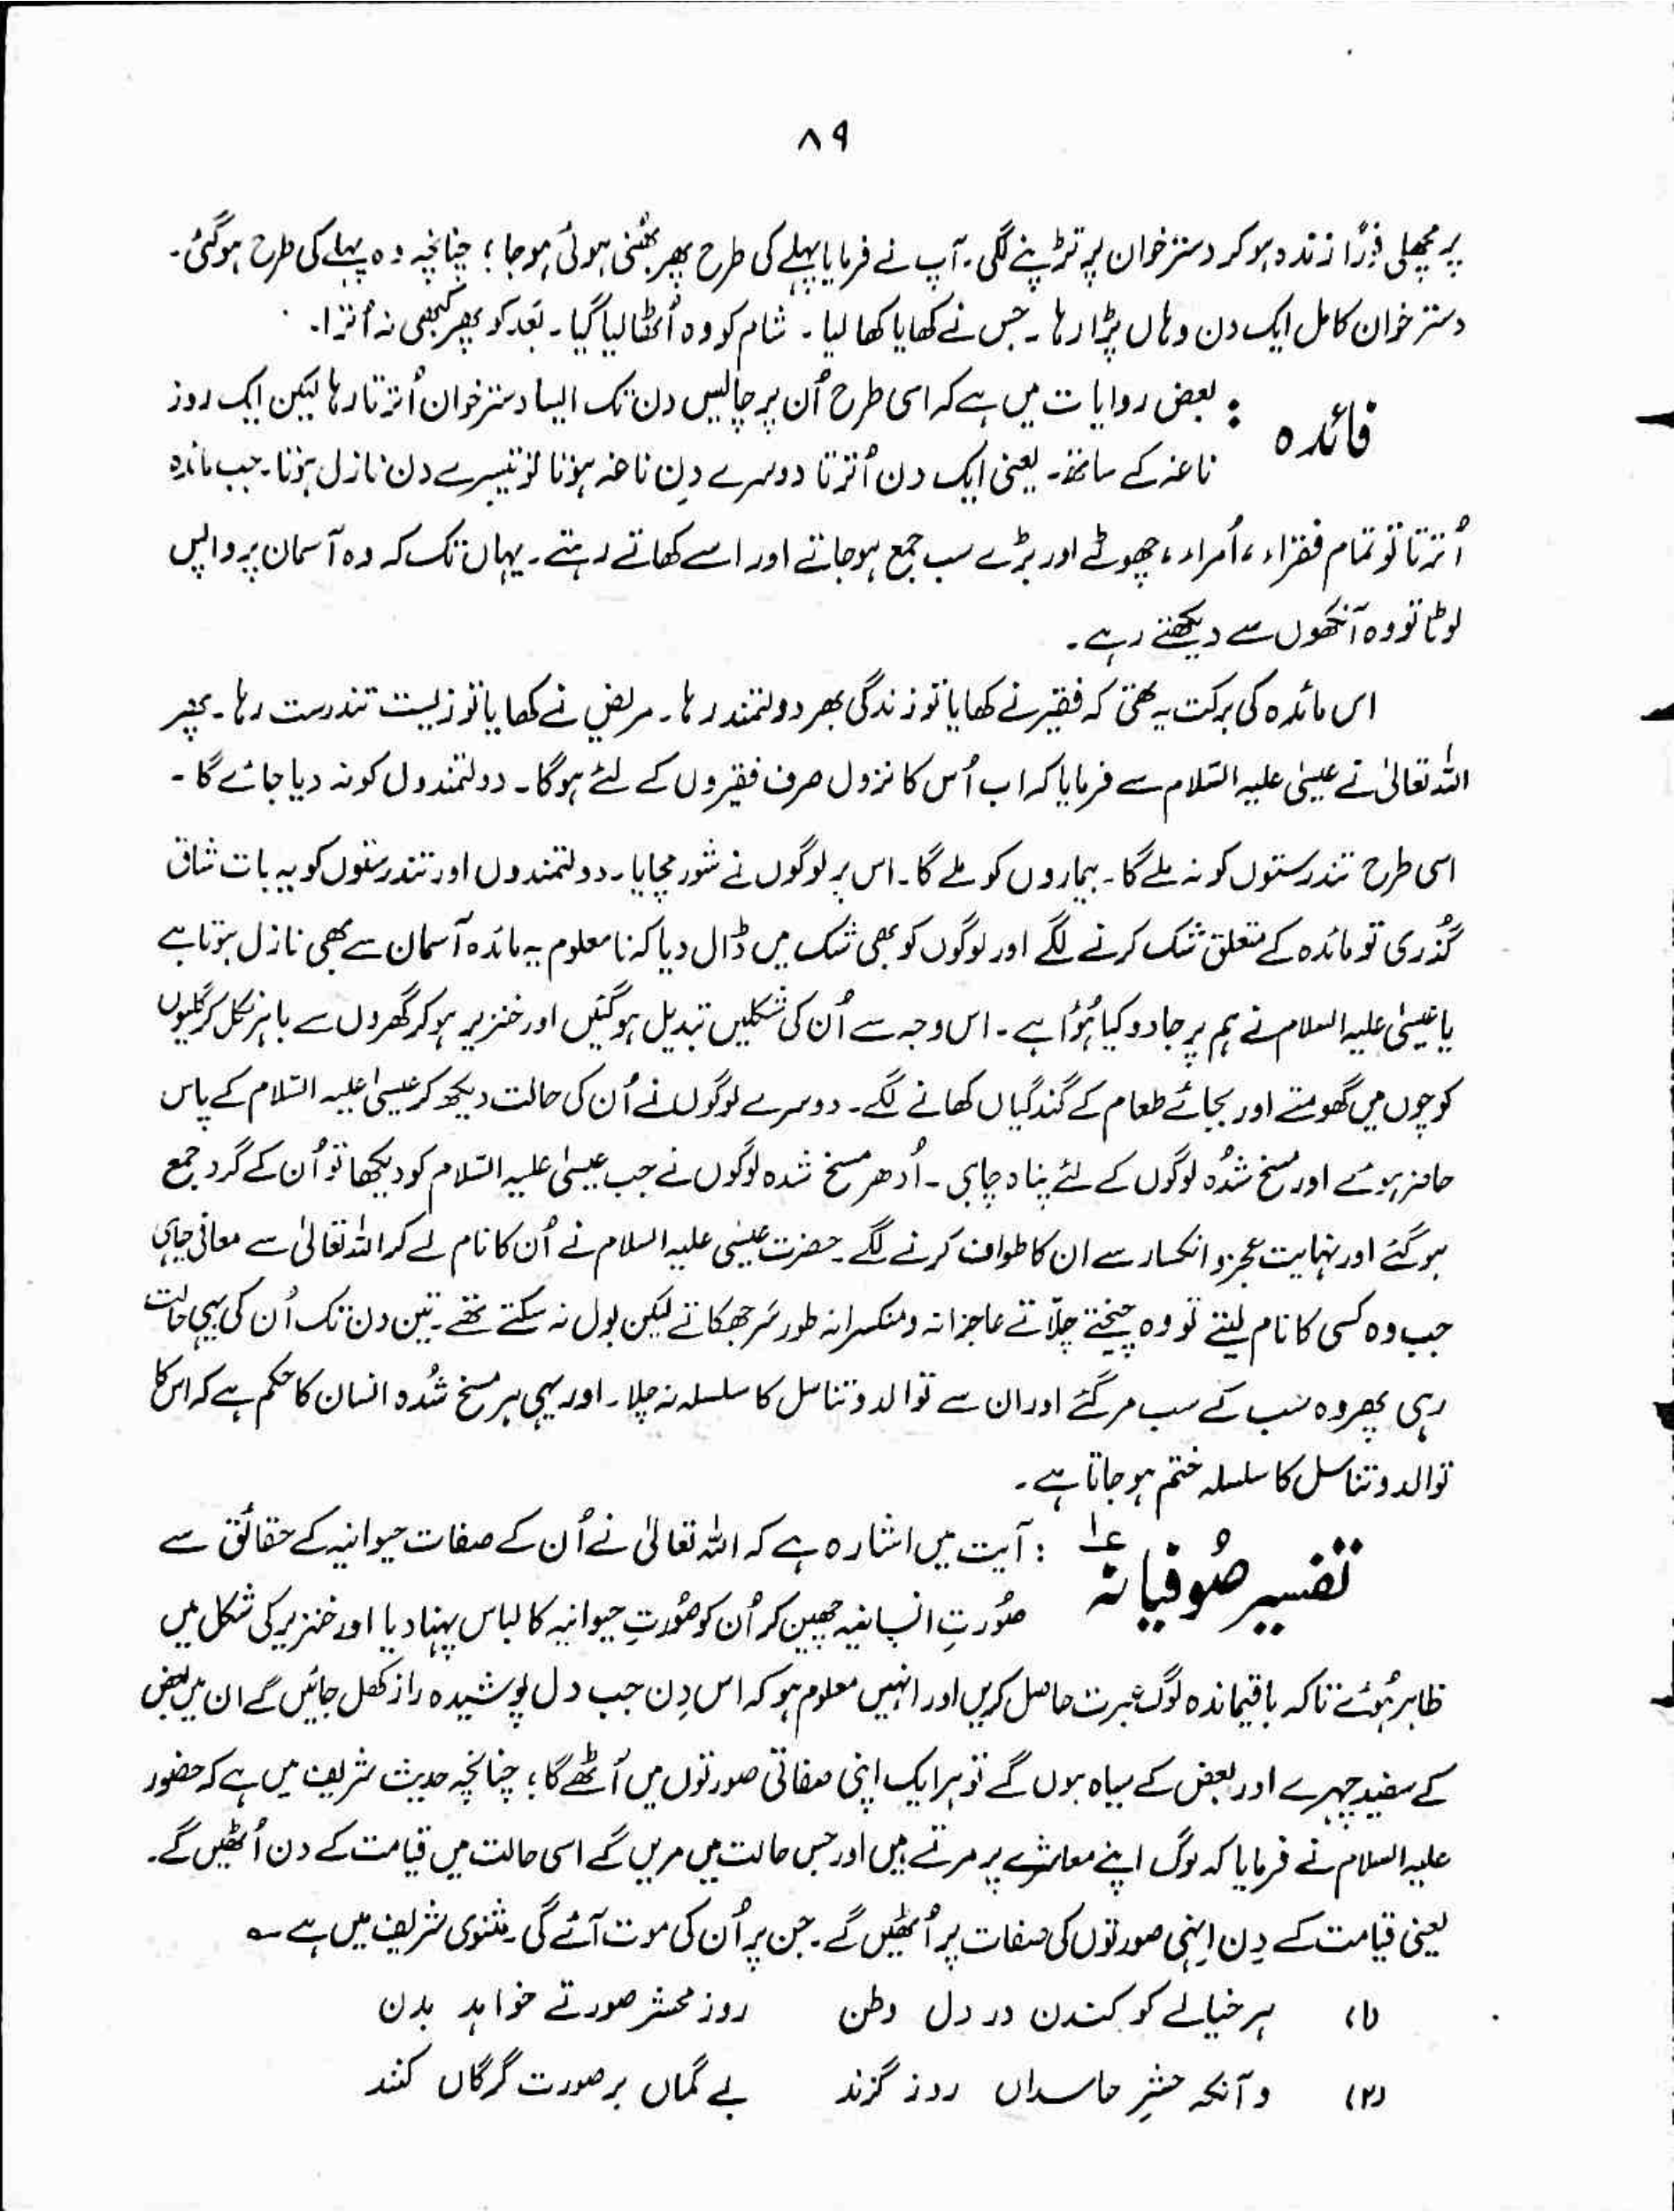 ۸۹
پر مچھلی فورًا زندہ ہو کر دسترخوان پر تڑپنے لگی۔ آپ نے فرمایا پہلے کی طرح پھر بھُنی ہوئی ہو جا؛ چنانچہ وہ پہلے کی طرح ہو گئی۔
دسترخوان کامل ایک دن وہاں پڑا رہا۔ جس نے کھایا کھا لیا۔ شام کو وہ اُٹھا لیا گیا۔ بعد کو پھر کبھی نہ اُترا۔
فائدہ : بعض روایات میں ہے کہ اسی طرح اُن پر چالیس دن تک ایسا دسترخوان اُترتا رہا لیکن ایک روز
ناغہ کے ساتھ۔ یعنی ایک دن اُترتا دوسرے دن ناغہ ہوتا تو تیسرے دن نازل ہوتا۔ جب مائدہ
اُترتا تو تمام فقراء، اُمراء، چھوٹے اور بڑے سب جمع ہو جاتے اور اسے کھاتے رہتے۔ یہاں تک کہ وہ آسمان پر واپس
لوٹا تو وہ آنکھوں سے دیکھتے رہے۔
اس مائدہ کی برکت یہ تھی کہ فقیر نے کھایا تو زندگی بھر دولتمند رہا۔ مریض نے کھایا تو زیست تندرست رہا۔ پھر
اللہ تعالیٰ نے عیسیٰ علیہ السّلام سے فرمایا کہ اب اُس کا نزول صرف فقیروں کے لئے ہوگا۔ دولتمندوں کو نہ دیا جائے گا۔
اسی طرح تندرستوں کو نہ ملے گا۔ بیماروں کو ملے گا۔ اس پر لوگوں نے شور مچایا۔ دولتمندوں اور تندرستوں کو یہ بات شاق
گذری تو مائدہ کے متعلق شک کرنے لگے اور لوگوں کو بھی شک میں ڈال دیا کہ نا معلوم یہ مائدہ آسمان سے بھی نازل ہوتا ہے
یا عیسیٰ علیہ السلام نے ہم پر جادو کیا ہُوا ہے۔ اس وجہ سے اُن کی شکلیں تبدیل ہو گئیں اور خنزیر ہو کر گھروں سے باہر نکل کر گلیوں
کوچوں میں گھومتے اور بجائے طعام کے گندگیاں کھانے لگے۔ دوسرے لوگوں نے اُن کی حالت دیکھ کر عیسیٰ علیہ السّلام کے پاس
حاضر ہوئے اور مسخ شُدہ لوگوں کے لئے پناہ چاہی۔ اُدھر مسخ شدہ لوگوں نے جب عیسیٰ علیہ السّلام کو دیکھا تو اُن کے گرد جمع
ہو گئے اور نہایت عجز و انکسار سے ان کا طواف کرنے لگے۔ حضرت عیسٰی علیہ السلام نے اُن کا نام لے کر اللہ تعالیٰ سے معافی چاہی
جب وہ کسی کا نام لیتے تو وہ چیختے چلّاتے عاجزانہ و منکسرانہ طور سَر جھکاتے لیکن بول نہ سکتے تھے۔ تین دن تک اُن کی یہی حالت
رہی پھر وہ سَب کے سب مر گئے اور ان سے توالد و تناسل کا سلسلہ نہ چلا۔ اور یہی ہر مسخ شُدہ انسان کا حکم ہے کہ اس کا
توالد و تناسل کا سلسلہ ختم ہو جاتا ہے۔
تفسیر صُوفیانہ ۱ ع : آیت میں اشارہ ہے کہ اللہ تعالیٰ نے اُن کے صفات حیوانیہ کے حقائق سے
صُورتِ انسانیہ چھین کر اُن کو صُورتِ حیوانیہ کا لباس پہنا دیا اور خنزیر کی شکل میں
ظاہر ہُوئے تاکہ باقیماندہ لوگ عبرت حاصل کریں اور انہیں معلوم ہو کہ اس دِن جب دل پوشیدہ راز کھل جائیں گے ان میں بعض
کے سفید چہرے اور بعض کے سیاہ ہوں گے تو ہر ایک اپنی صفاتی صورتوں میں اُٹھے گا؛ چنانچہ حدیث شریف میں ہے کہ حضور
علیہ السلام نے فرمایا کہ لوگ اپنے معاشرے پر مرتے ہیں اور جس حالت میں مریں گے اسی حالت میں قیامت کے دن اُٹھیں گے۔
یعنی قیامت کے دِن اِنہی صورتوں کی صفات پر اُٹھیں گے۔ جن پر اُن کی موت آئے گی۔ مثنوی شریف میں ہے ؎
(۱) ہر خیالے کو کندن در دل وطن روز محشر صورتے خواہد بدن
(۲) و آنکہ حشرِ حاسداں روز گزند بے گماں بر صورت گرگاں کنند